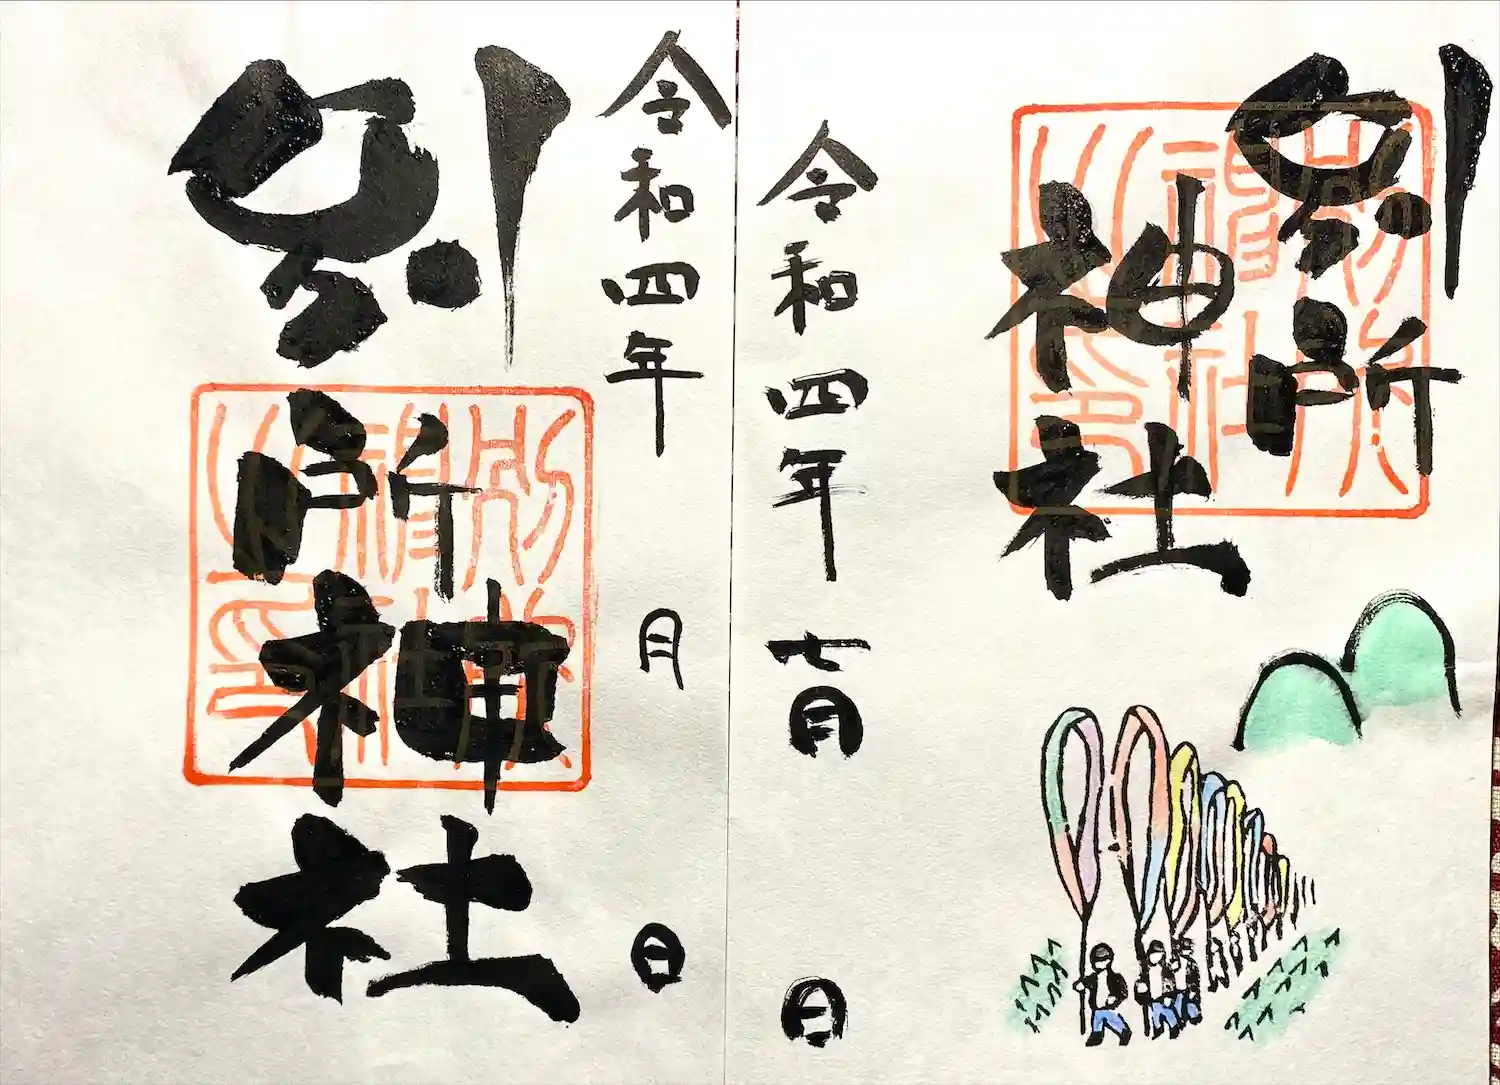 別所
神社
別所神社之印
令和四年七月 日
令和四年 月 日
別所神社
別所神社之印